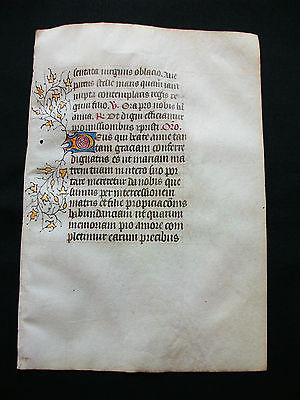 sentata virginis oblacio. Ave
stelle maris quam iam
nupta contemplaris regis
filio. V. Ora pro nobis b
anna. R. Ut digni efficiamur
promissionibus xpristi Oro.
Deus qui beate anne tan
tam graciam conferre
dignatus es ut mariam ma
trem tuam in utero suo por
tare mereretur da nobis que
sumus per intercessionem
matris et filie propiciacionis
habundanciam ut quarum
memoriam pio amore com
plectimur earum precibus